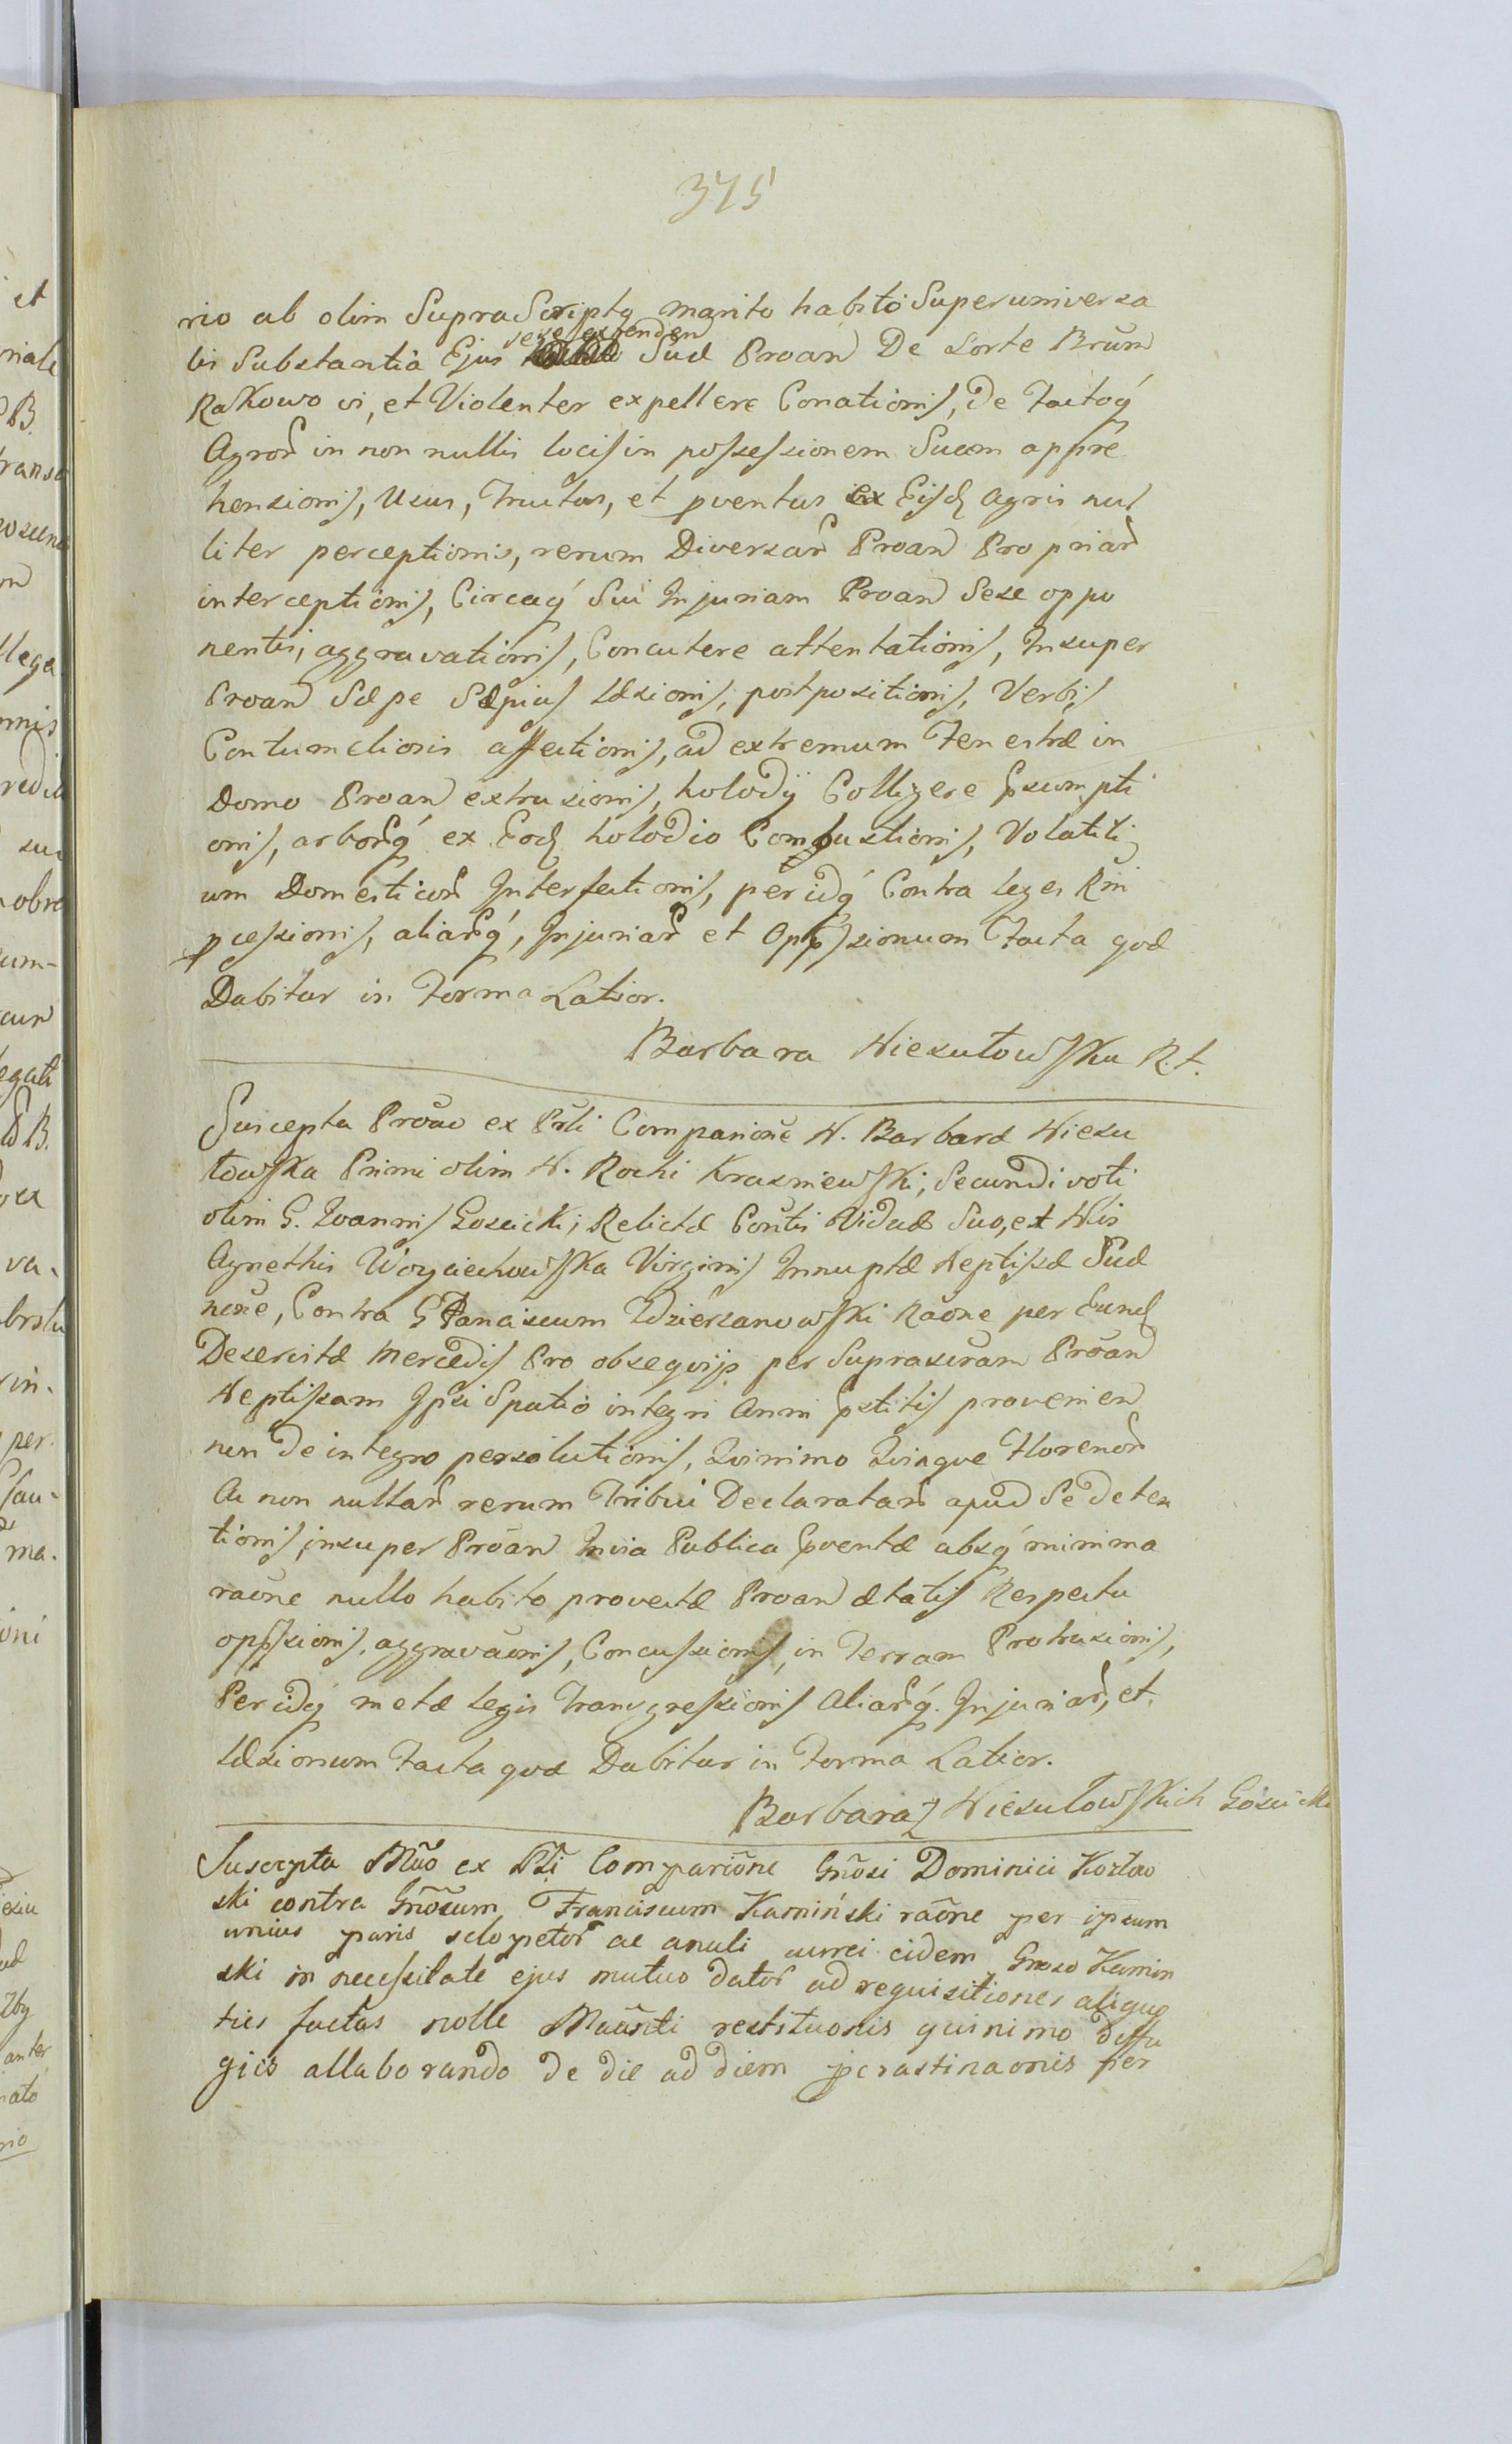 375
rio ab olim SupraScripto marito habito Superuniversa
sese extenden
lis Substantia Ejus Suæ Proan De Sorte Brum
Rakowo vi, et Violenter expellere Conationis, De Factoq́
Agror in non nullis locis in possessionem Suam appre
hensionis, Usus, Fructus, et pventus ex Eisd Agris nul
liter perceptionis, rerum Diversar Proan Propriar
interceptionis, Circaq́ Sui Injuriam Proan Sese oppo
nentis, aggravationis, Concutere attentationis, Insuper
Proan Sæpe Sæpius læsionis, postpositionis, Verbis
Contumeliosis affectionis, ad extremum Fenestræ in
Domo Proan extrusionis, holodÿ Colligere psumpti
onis, arborq́ ex Eod holodio Combustionis, Volatili
um Domesticor Interfectionis, per idq́ Contra leges Rni
pcessionis, aliarq́, Injuriar et Oppssionum Facta qvæ
Dabitur in Forma Latior.
Barbara Niesułowska R.t.
Suscepta Proao ex Prli Comparione N. Barbaræ Niesu
łowska Primi olim N. Rochi Krasniewski, Secundi voti
olim G. Ioannis Goscicki, Relictæ Contis Viduæ Suo, et Nlis
Agnethis Woyciechowska Virginis Innuptæ Neptisæ Suæ
nene, Contra G Franciscum Zdzierzanowski Raone per Eund
Deservitæ Mercedis Pro obseqvijs per Suprascram Proan
Neptissam Ipsi Spatio integri Anni pstitis provenien
nen de integro persolutionis, Qvinimo Qvinqve Florenor
Ac non nullar rerum Tribui Declaratar apud Se deten
tionis, insuper Proan Invia Publica pventæ absq́ minima
raone nullo habito provectæ Proan ætatis Respectu
oppssionis, aggravaonis, Concussionis, in Terram Protrusionis,
Per idq́ metæ legis Transgressionis Aliarq́ Injuriar, et
læsionum Facta qvæ Dabitur in Forma Latior.
Barbara z Niesułowskich Gościcki
Suscepta Mao ex Prli Comparione Gnosi Dominici Kozłow
ski contra Gnosum Franciscum Kamiński raone per ipsum
unius paris sclopetor ac anuli aurei eidem Gnoso Kamin
ski in necessitate ejus mutuo dator ad requisitiones aliquo
ties factas nolle Maanti restituonis quinimo diffu
gies allaborando de die ad diem pcrastinaonis per